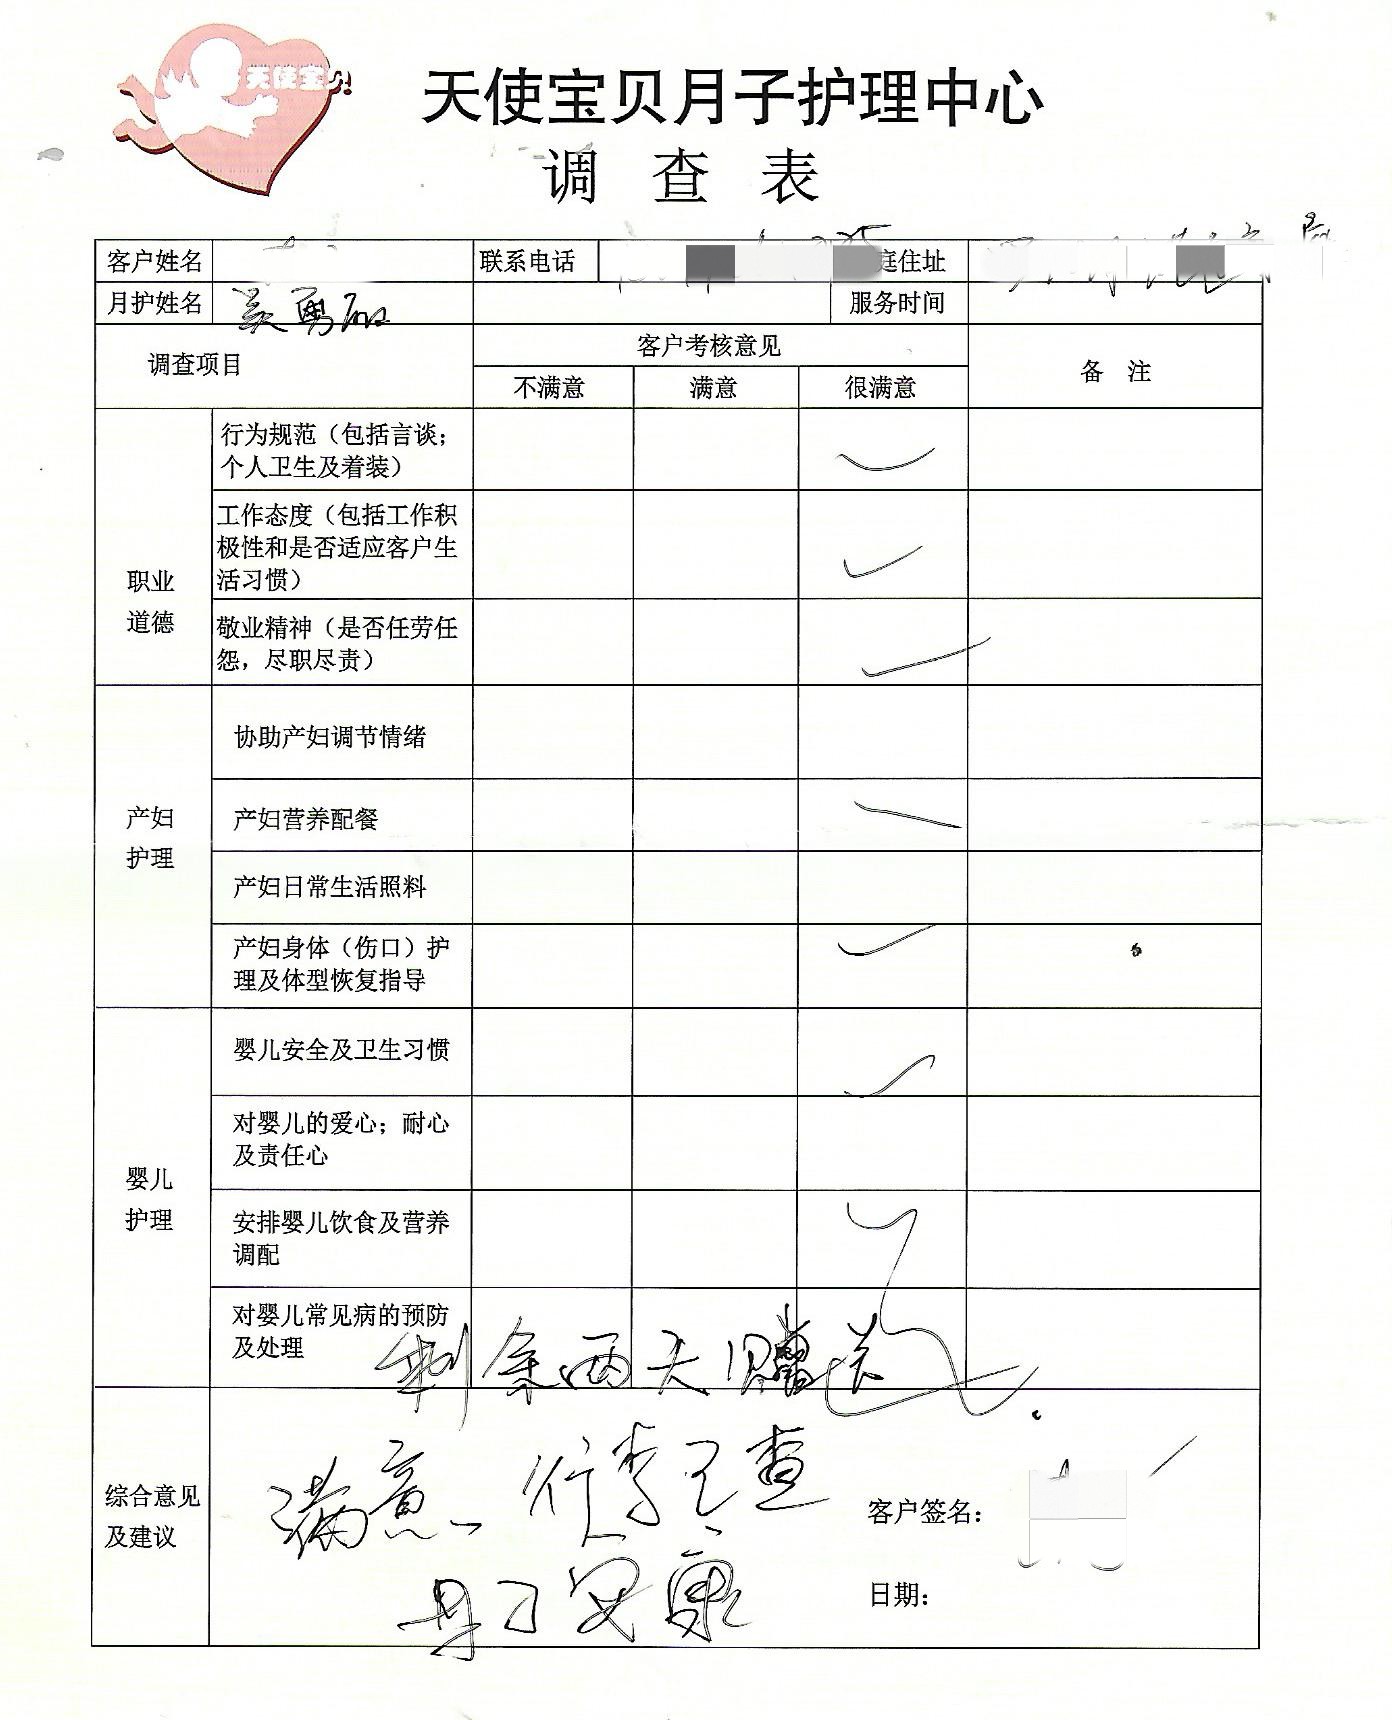 天使宝贝
天使宝贝月子护理中心
调 查 表
客户姓名 联系电话 庭住址
月护姓名 服务时间
调查项目 客户考核意见 备 注
不满意 满意 很满意
职业道德
行为规范（包括言谈；
个人卫生及着装）
工作态度（包括工作积
极性和是否适应客户生
活习惯）
敬业精神（是否任劳任
怨，尽职尽责）
产妇护理
协助产妇调节情绪
产妇营养配餐
产妇日常生活照料
产妇身体（伤口）护
理及体型恢复指导
婴儿护理
婴儿安全及卫生习惯
对婴儿的爱心；耐心
及责任心
安排婴儿饮食及营养
调配
对婴儿常见病的预防
及处理
剩余两天赠送.
综合意见
及建议
满意、行李已查
母子安康
客户签名：
日期：